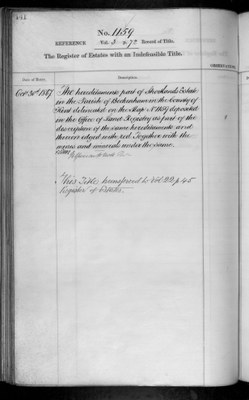 No. 1159
REFERENCE Vol. 3 p. 72 Record of Title.
The Register of Estates with an Indefeasible Title.
Date of Entry. Description. OBSERVATIONS
The hereditaments part of Shortlands Estate
in the Parish of Beckenham in the County of
Kent delineated on the Map No. 1159 deposited
in the Office of Land Registry as part of the
description of the same hereditaments and
therein edged with red Together with the
mines and minerals under the same.
This Title transferred to Vol. 22 p. 45
Register of Estates.